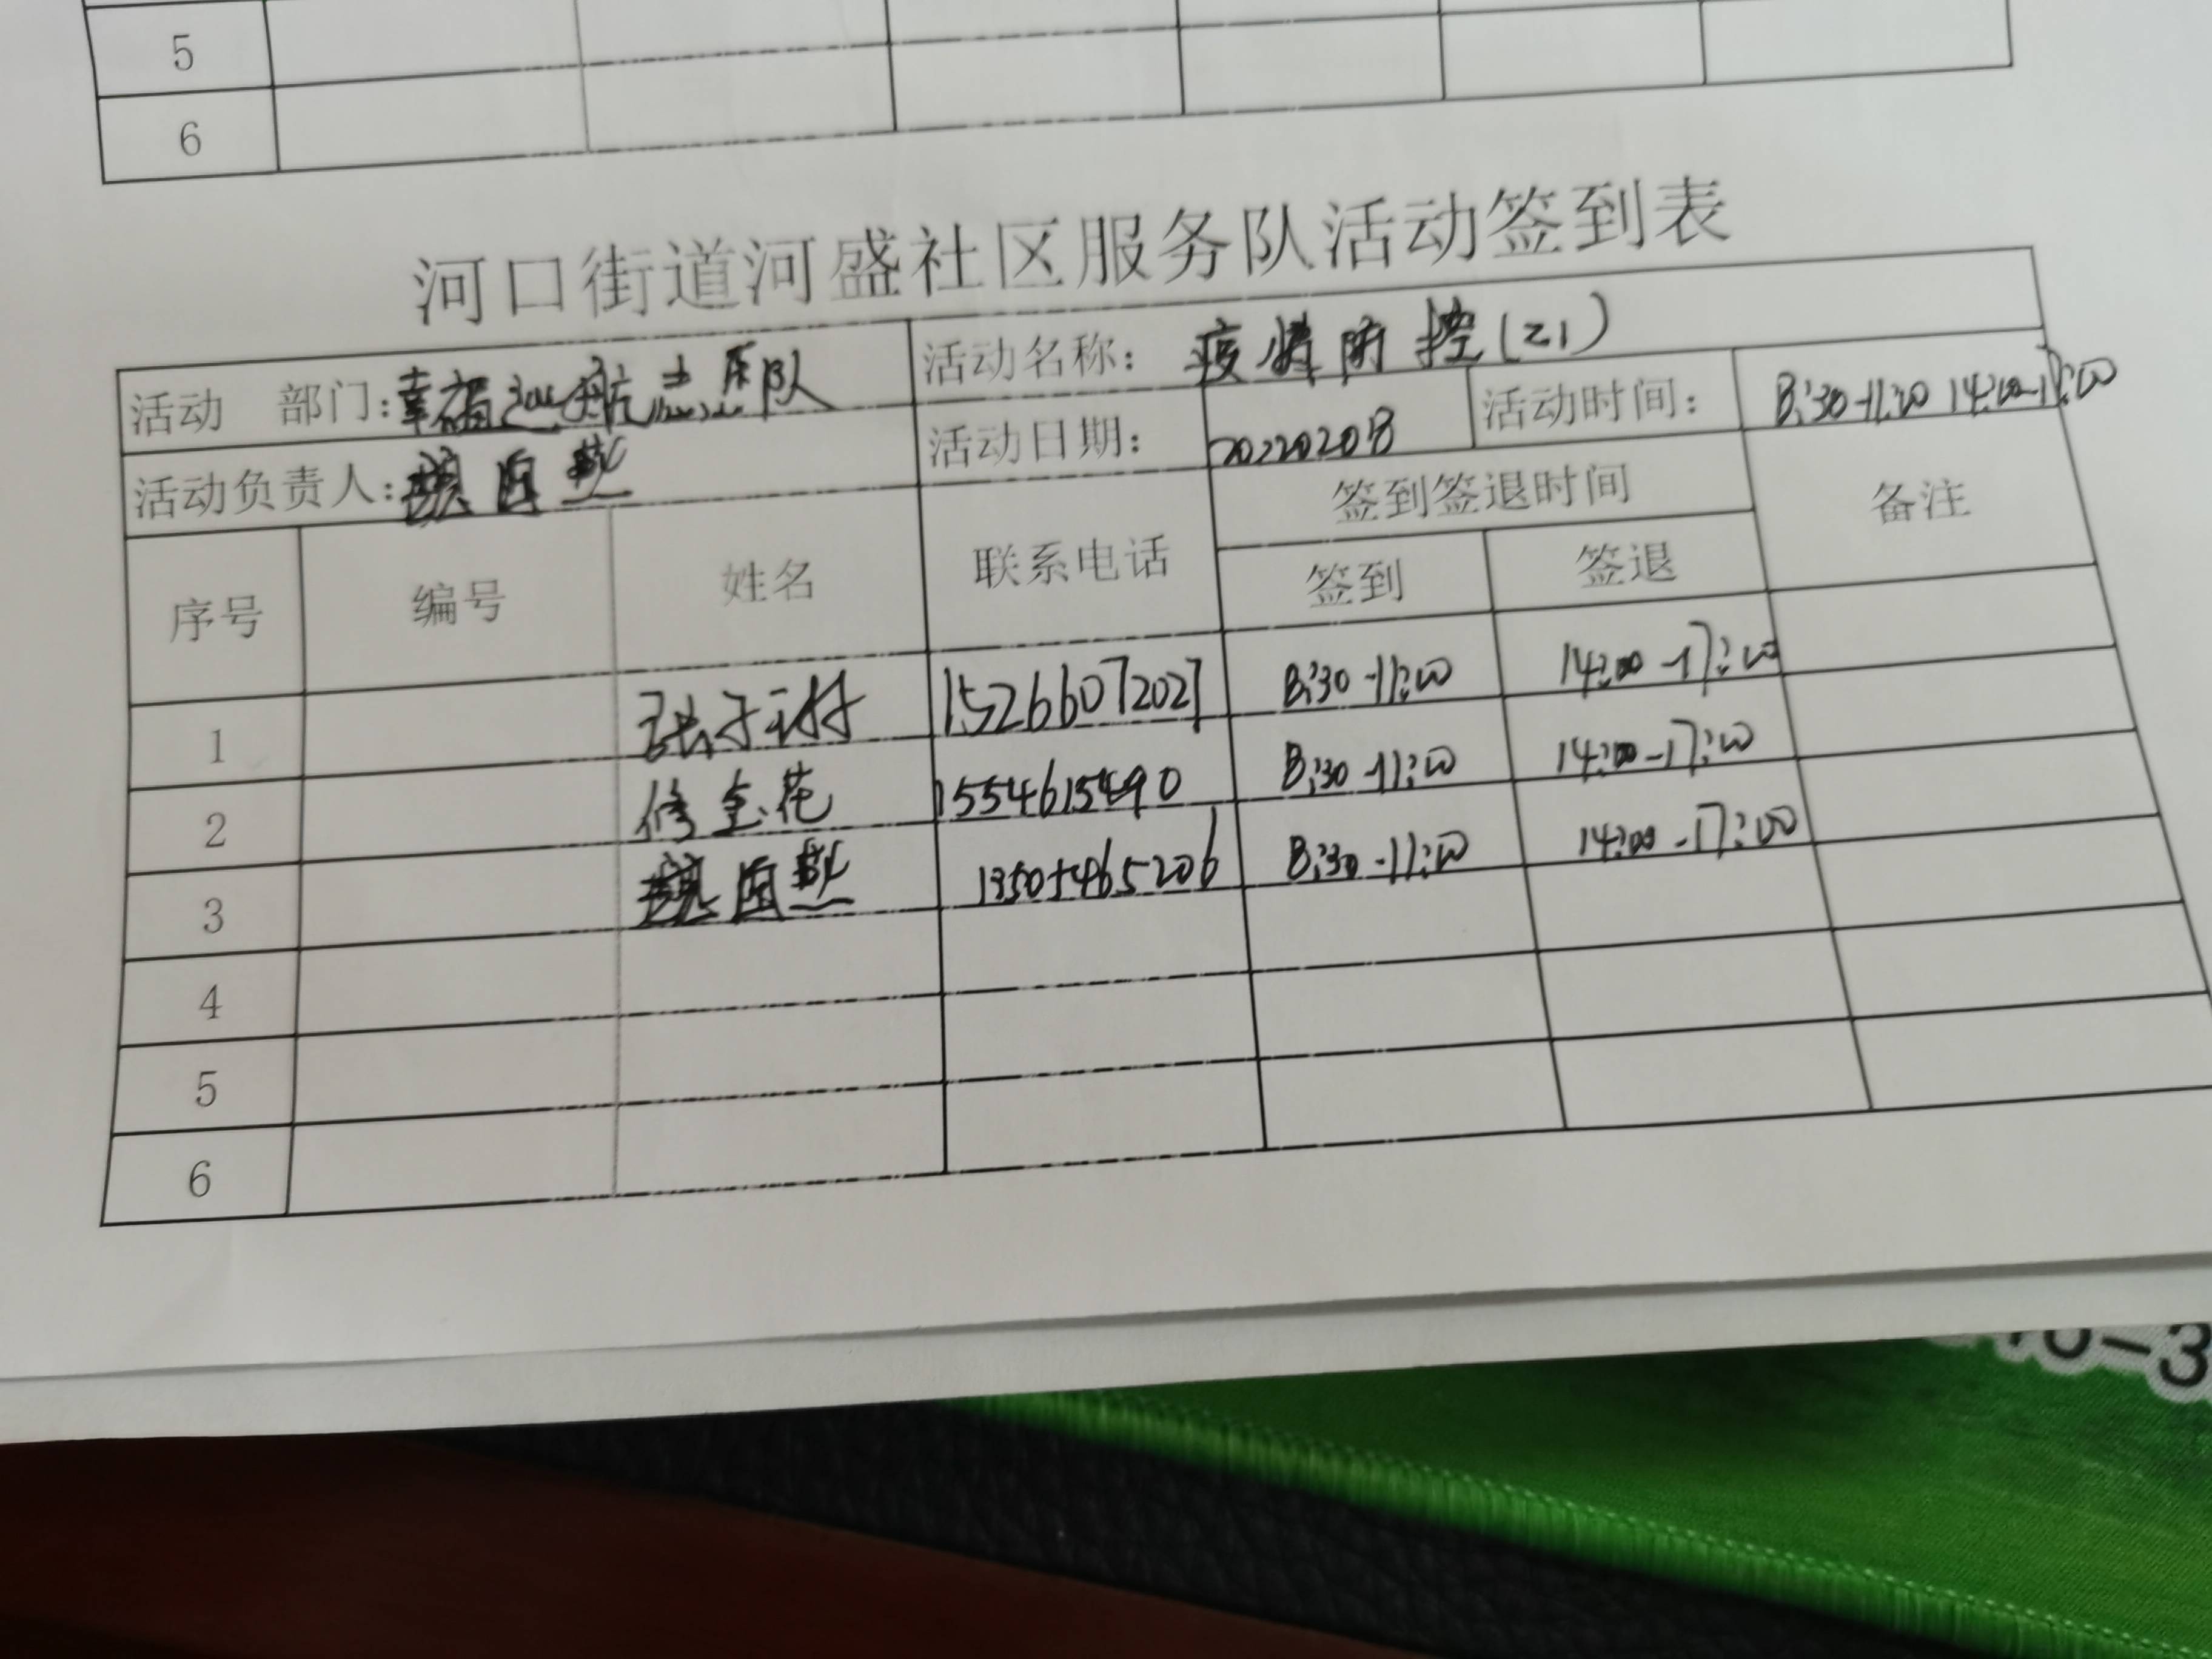 5
6
河口街道河盛社区服务队活动签到表
活动 部门:幸福巡航志愿队 活动名称: 疫情防控(21)
活动负责人: 活动日期: 20220208 活动时间: 8:30-11:00 14:00-17:00
序号 编号 姓名 联系电话 签到签退时间 备注
签到 签退
1 15266072027 8:30-11:00 14:00-17:00
2 修金花 15546154490 8:30-11:00 14:00-17:00
3 13505465206 8:30-11:00 14:00-17:00
4
5
6